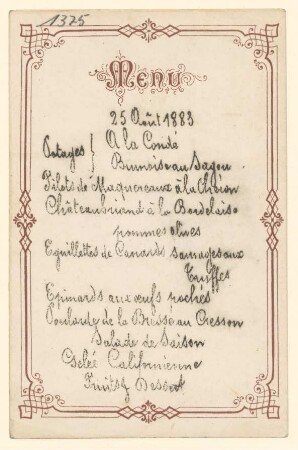 1375
Menu
25 Août 1883
Potages } A la Condé
Brunoise au Sagou
Filets de Maquereaux à la
Châteaubriand à la Bordelaise
pommes
Eguillettes de Canards sauvages aux
Truffes
Epinards aux œufs pochés
Poularde de la Bresse au Cresson
Salade de Saison
Gelée Californienne
Fruits, Dessert